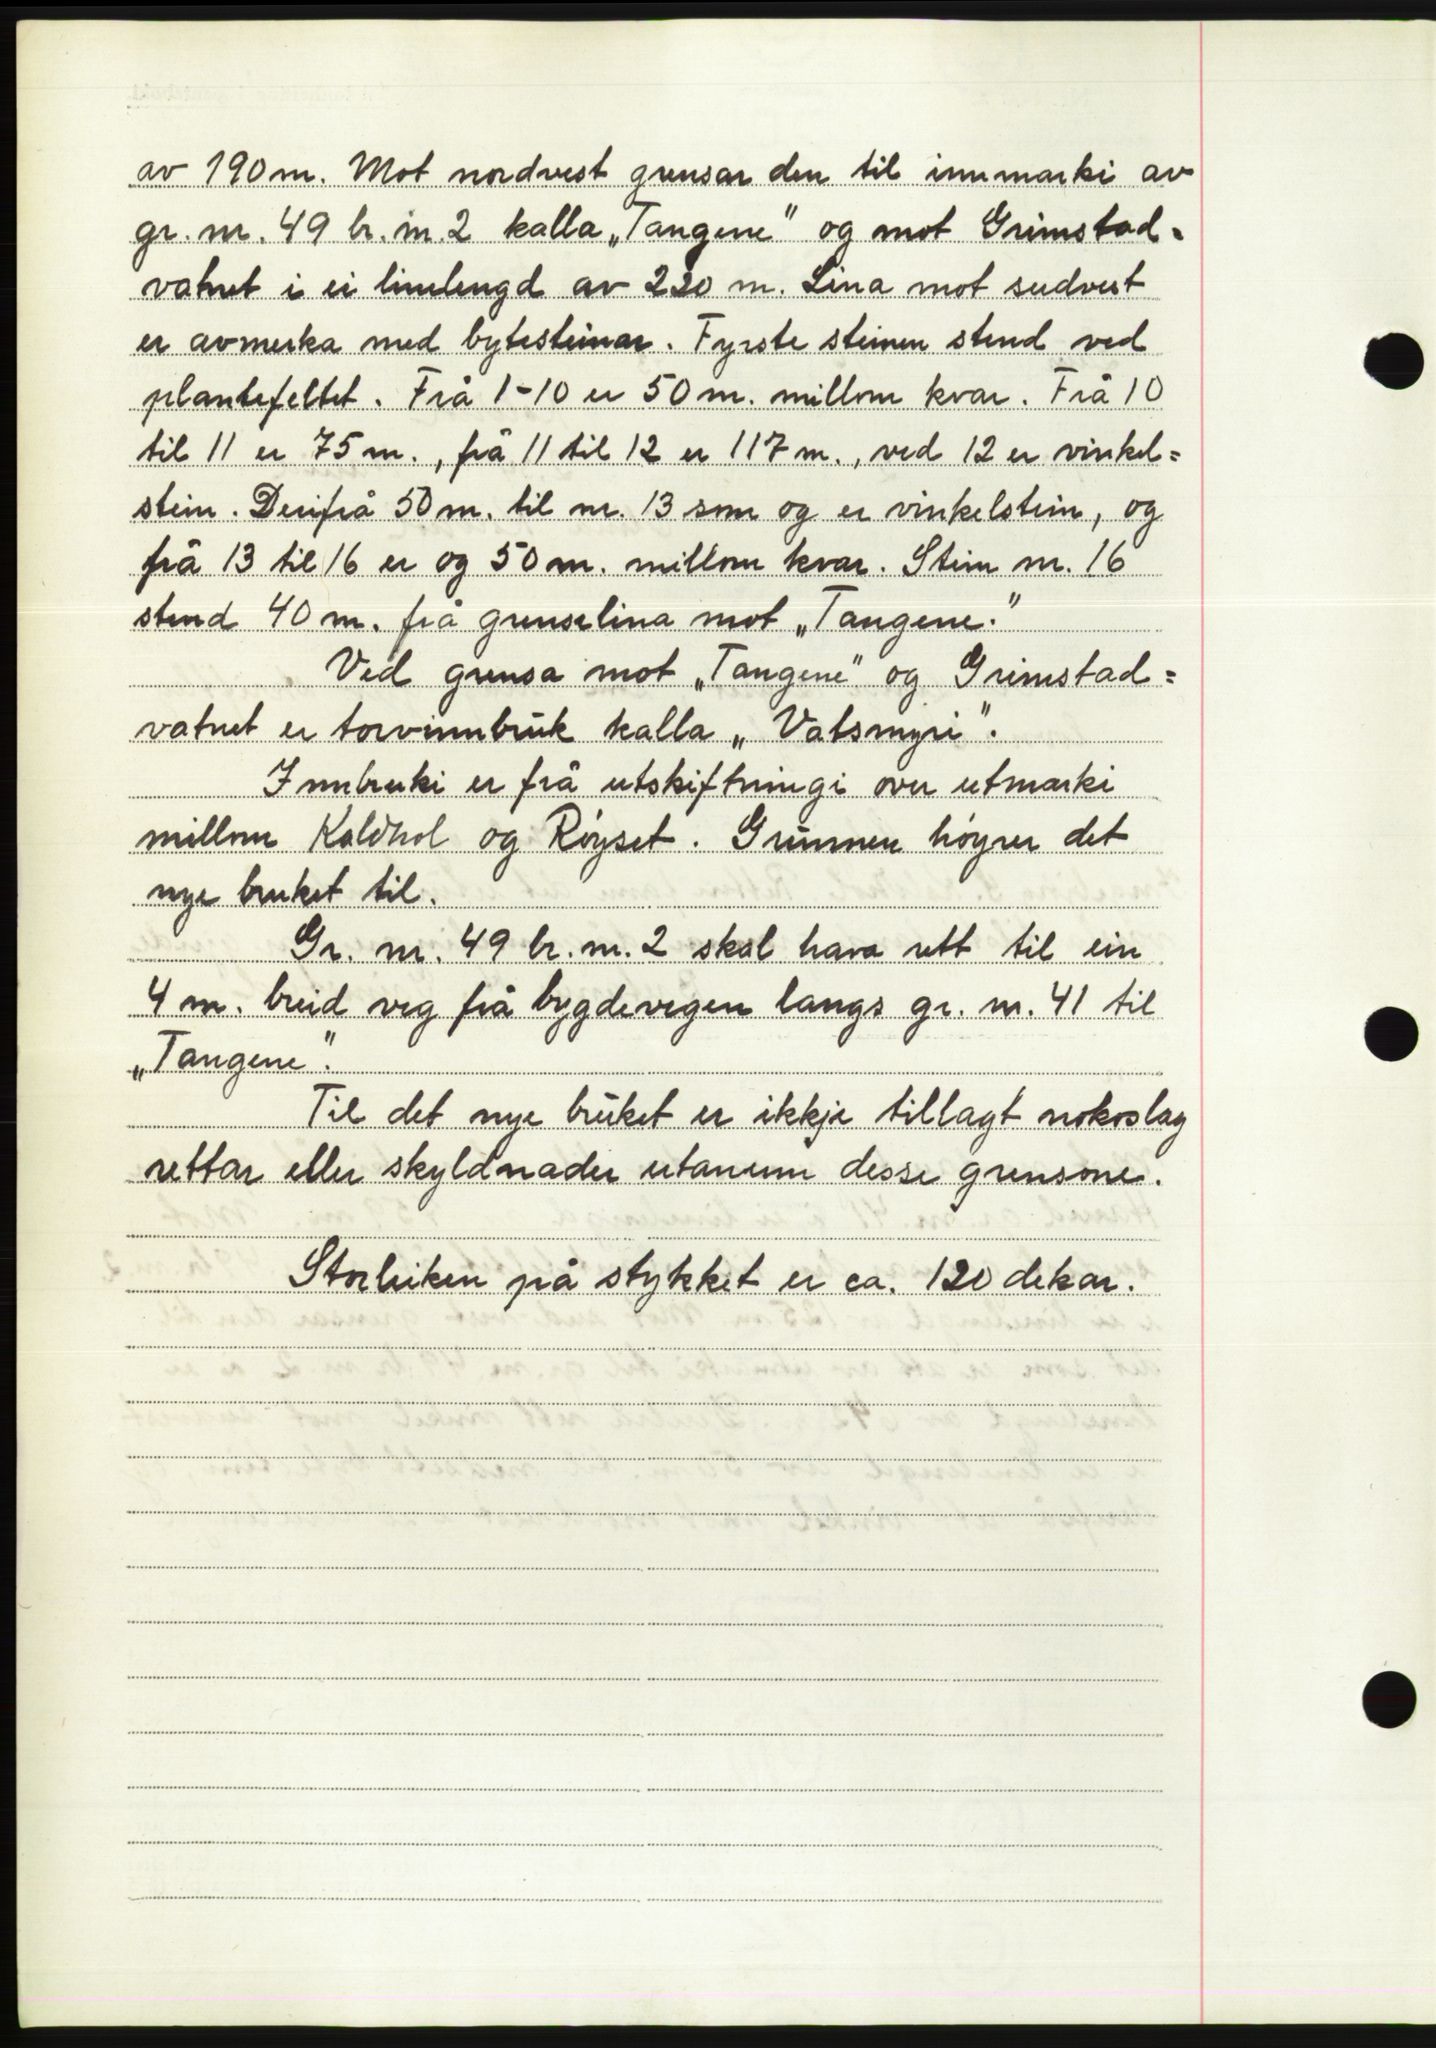 av 190 m. Mot nordvest grensar den til innmarki av
gr. nr. 49 br. nr. 2 kalla „Tangene” og mot Grimstad=
vatnet i ei linelengd av 220 m. Lina mot sudvest
er avmerka med bytesteinar. Fyrste steinen stend ved
plantefeltet. Frå 1-10 er 50 m. millom kvar. Frå 10
til 11 er 75 m., frå 11 til 12 er 117 m., ved 12 er vinkel=
stein. Derifrå 50 m. til nr. 13 som og er vinkelstein, og
frå 13 til 16 er og 50 m. millom kvar. Stein nr. 16
stend 40 m. frå grenselina mot „Tangene.”
Ved grensa mot „Tangene” og Grimstad=
vatnet er torvinnbruk kalla „Vatsmyri”.
Innbruki er frå utskiftningi over utmarki
millom Kaldhol og Røyset. Grunnen høyrer det
nye bruket til.
Gr. nr. 49 br. nr. 2 skal hava rett til ein
4 m. breid veg frå bygdevegen langs gr. nr. 41 til
„Tangene”.
Til det nye bruket er ikkje tillagt nokoslag
rettar eller skyldnader utanum desse grensone.
Storleiken på stykket er ca. 120 dekar.